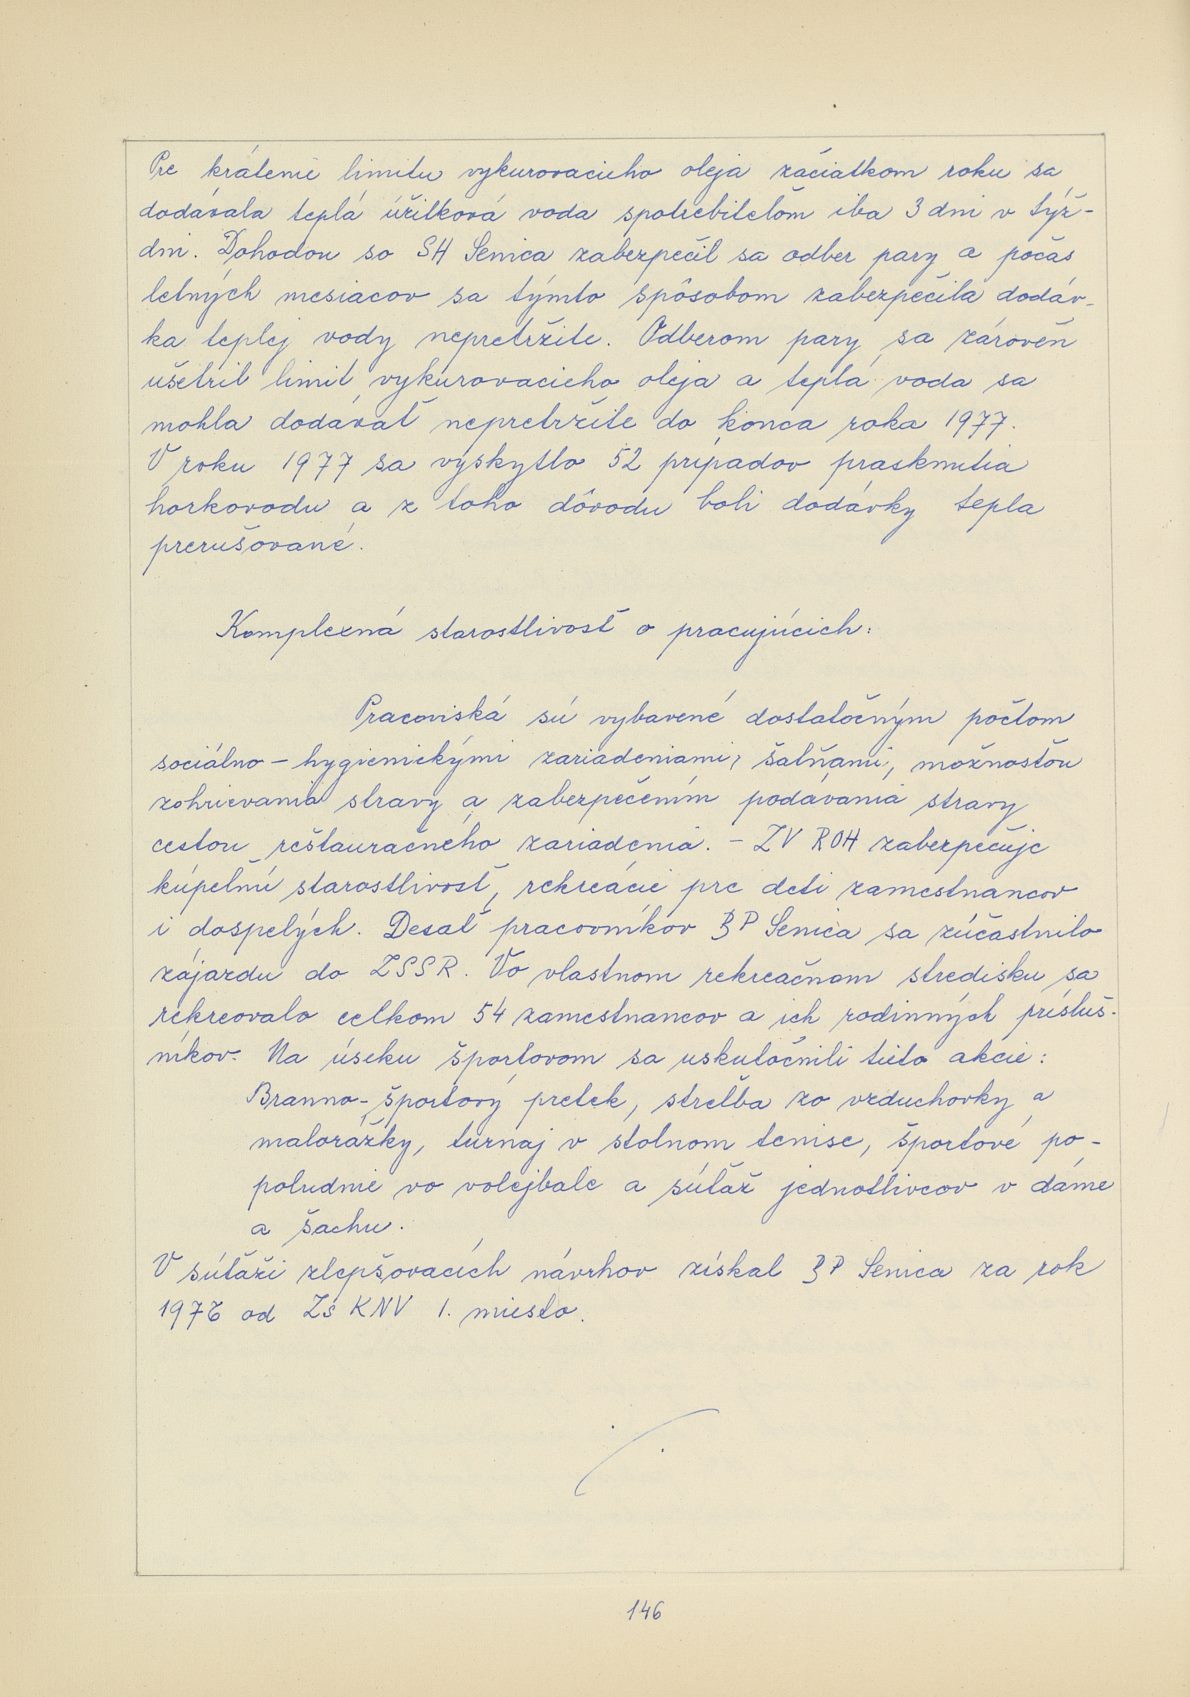 Pre krátenie limitu vykurovacieho oleja začiatkom roku sa
dodávala teplá úžitková voda spotrebiteľom iba 3 dni v týž-
dni. Dohodou so SH Senica zabezpečil sa odber pary a počas
letných mesiacov sa týmto spôsobom zabezpečila dodáv-
ka teplej vody nepretržite. Odberom pary sa zároveň
ušetril limit vykurovacieho oleja a teplá voda sa
mohla dodávať nepretržite do konca roka 1977.
V roku 1977 sa vyskytlo 52 prípadov prasknutia
horkovodu a z toho dôvodu boli dodávky tepla
prerušované.
Komplexná starostlivosť o pracujúcich:
Pracoviská sú vybavené dostatočným počtom
sociálno - hygienickými zariadeniami, šatňami, možnosťou
zohrievania stravy a zabezpečením podávania stravy
cestou reštauračného zariadenia. - ZV ROH zabezpečuje
kúpeľnú starostlivosť, rekreácie pre deti zamestnancov
i dospelých. Desať pracovníkov BP Senica sa zúčastnilo
zájazdu do ZSSR. Vo vlastnom rekreačnom stredisku sa
rekreovalo celkom 54 zamestnancov a ich rodinných prísluš-
níkov. Na úseku športovom sa uskutočnili tieto akcie:
Branno-športový pretek, streľba zo vzduchovky a
malorážky, turnaj v stolnom tenise, športové po-
poludnie vo volejbale a súťaž jednotlivcov v dáme
a šachu.
V súťaži zlepšovacích návrhov získal BP Senica za rok
1976 od ZsKNV 1. miesto.
146